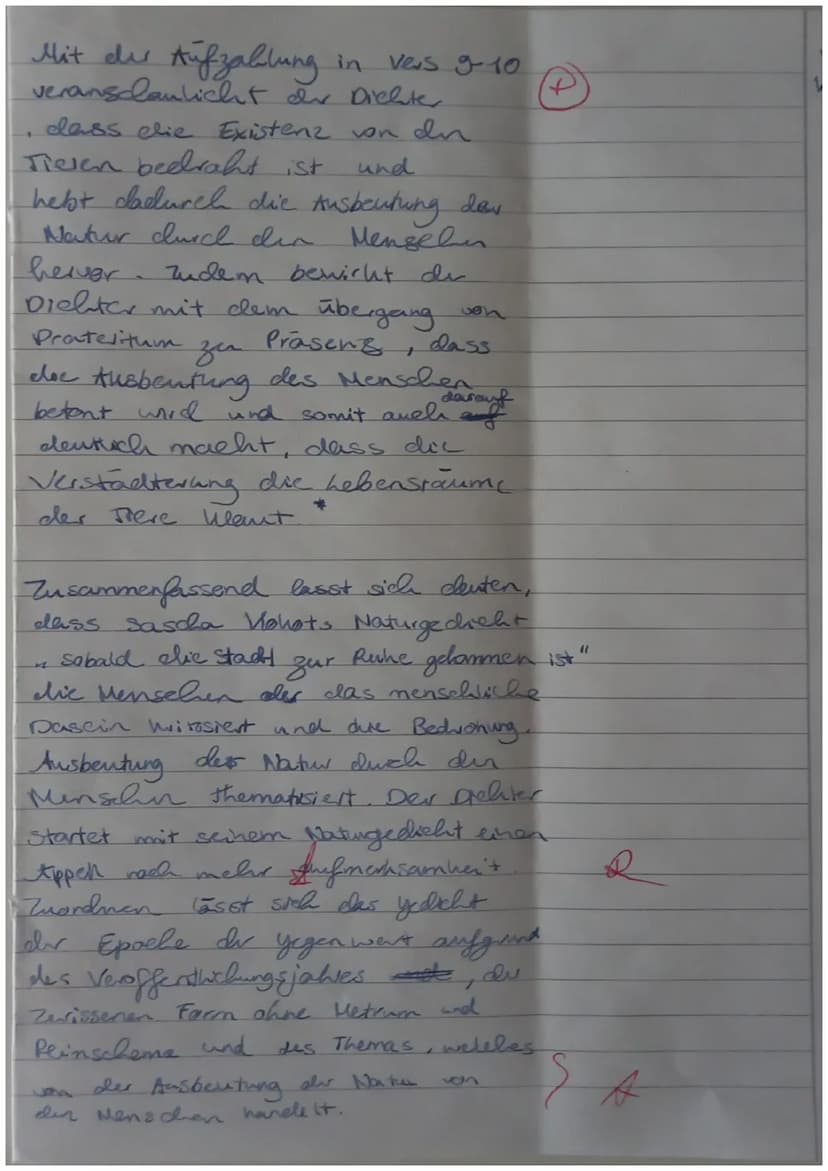 Mit der Aufzählung in Vers 9-10
veranschaulicht der Dichter
, dass die Existenz von den
Tieren bedroht ist und
hebt dadurch die Ausbeutung der
Natur durch den Menschen
hervor. Zudem bewirkt der
Dichter mit dem übergang von
Präteritum zu Präsens, dass
die Ausbeutung des Menschen
betont wird und somit auch darauf
deutlich macht, dass die
Verstädterung die Lebensräume
der Tiere klaut *
Zusammenfassend lässt sich deuten,
dass Sascha Naturgedicht
"sobald die Stadt zur Ruhe gekommen ist"
die Menschen oder das menschliche
Dasein kritisiert und die Bedrohung,
Ausbeutung der Natur durch den
Menschen thematisiert. Der Dichter
startet mit seinem Naturgedicht einen
Appell nach mehr Aufmerksamkeit
R
Zuordnen lässt sich das gedicht
der Epoche der gegenwart aufgrund
des Veröffentlichungsjahres, der
zerissenen Form ohne Metrum und
Reimschema und des Themas, welches
von der Ausbeutung der Natur von
den Menschen handelt.
A